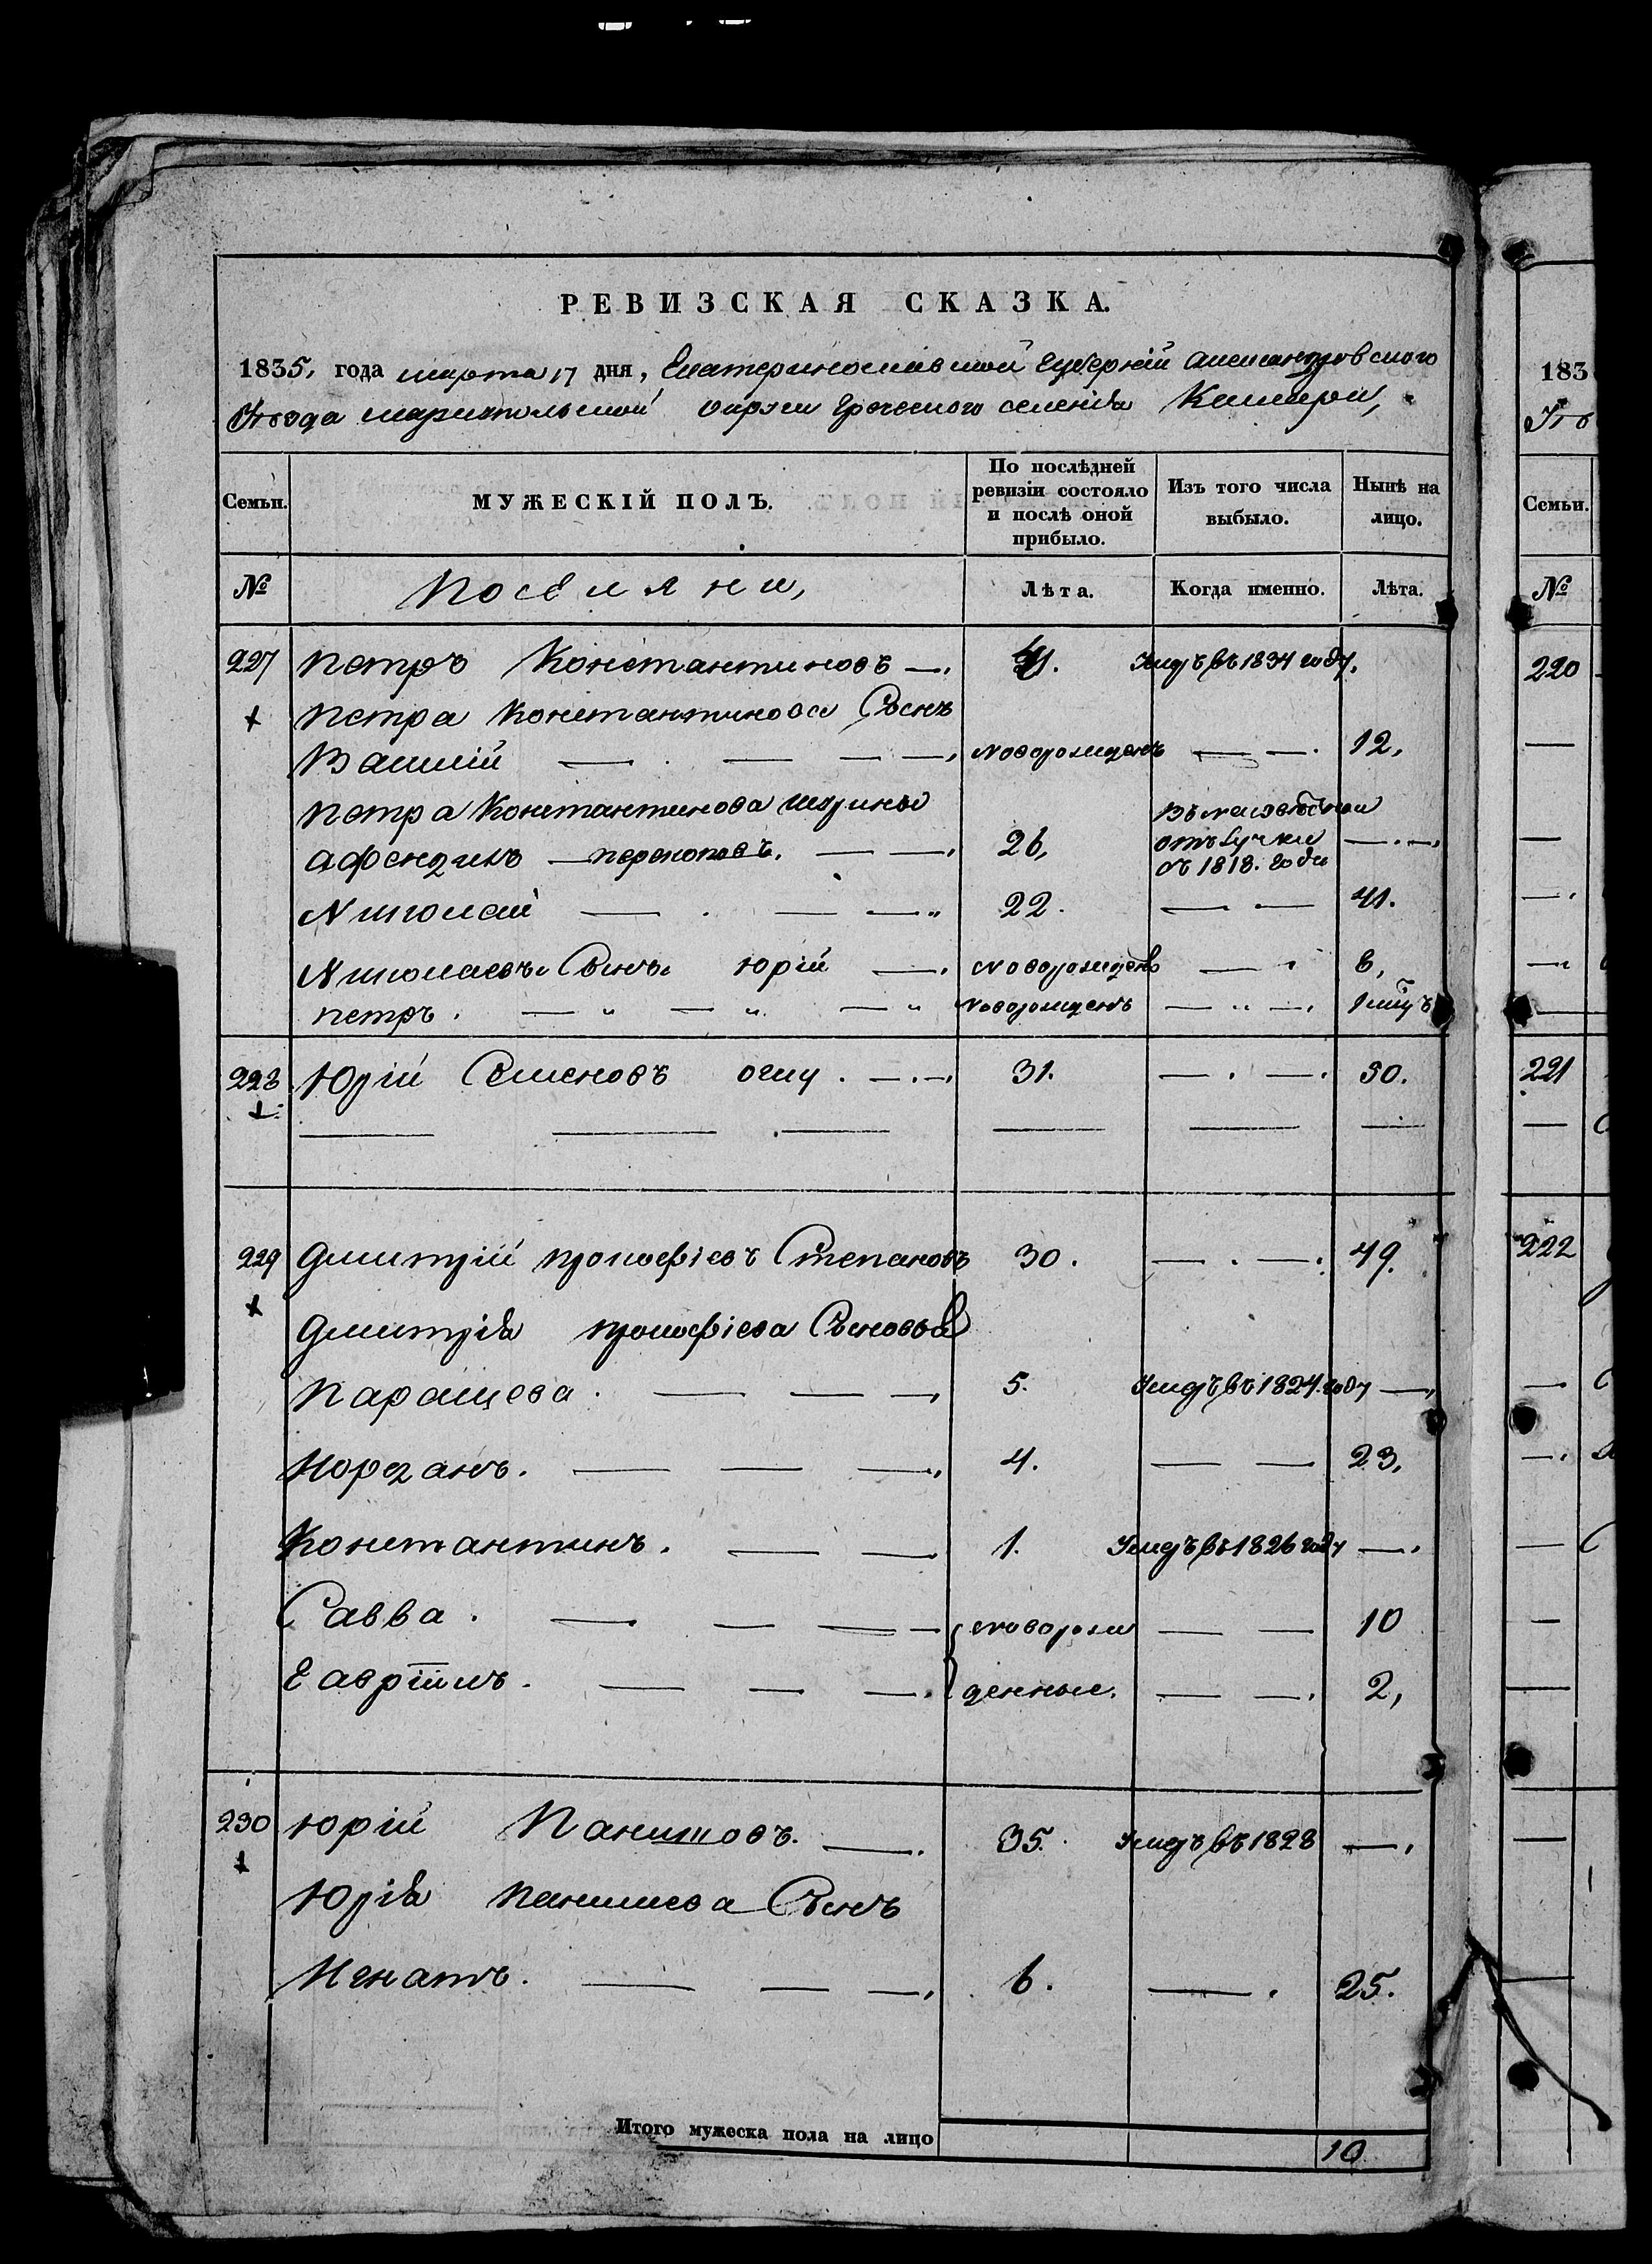 РЕВИЗСКАЯ СКАЗКА.
1835, года марта 17 дня, Екатеринославской губерніи Александровского
Уѣзда мариупольской округи греческого селенія
Семьи.
МУЖЕСКІЙ ПОЛЪ.
По послѣдней ревизіи состояло и послѣ оной прибыло.
Изъ того числа выбыло.
Нынѣ на лицо.
№
Поселяни,
Лѣта.
Когда именно.
Лѣта.
227 Петръ Константиновъ —. Умръ въ 1834 году,
Петра Константинова Сынъ
Василій — — — —, новорожденъ — —. 12,
Петра Константинова шурины
Афендикъ — — —, 26, въ неизвѣстной отлучки съ 1818. года —.—,
Николай — . — — „ 22. — . — 41.
Николаевъ Сынъ Юрій —. новорожденъ — . 6,
петръ. — „ — „ — „ новорожденъ — „ —.
228 Юрій Семеновъ —.—, 31. — . —. 50.
229 Дмитрій прокофіевъ Степановъ 30. — . —. 49.
Дмитрія прокофіева Сыновья
Паращева. — — —, 5. Умръ въ 1824. году —,
Иорданъ. — — —, 4. — — 23,
Константинъ. — — 1. Умръ въ 1826 году —.
Савва. — — — — новорож — — 10
Гавріилъ. — — —. денные. — —. 2,
230 Юрій —. 35. Умръ въ 1828 —,
Юрія Сынъ
Игнатъ. — — —, 6. — . 25.
Итого мужеска пола на лицо 10
183
Семьи.
№
220
221
222